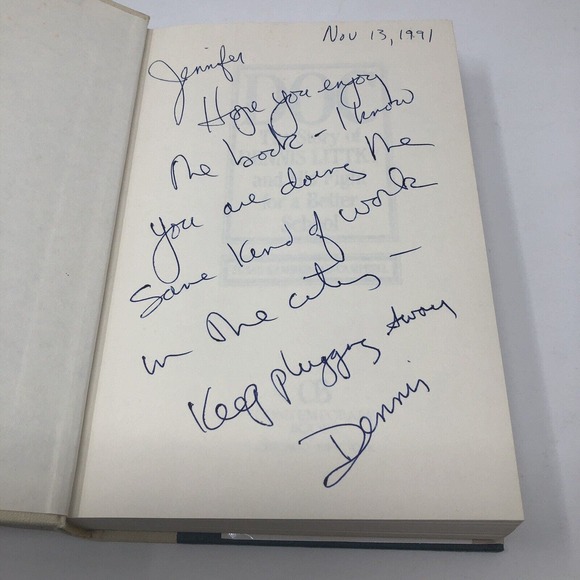 Nov 13, 1991
Jennifer
Hope you enjoy
the book - I know
you are doing the
same kind of work
in the cities -
Keep plugging away
Dennis